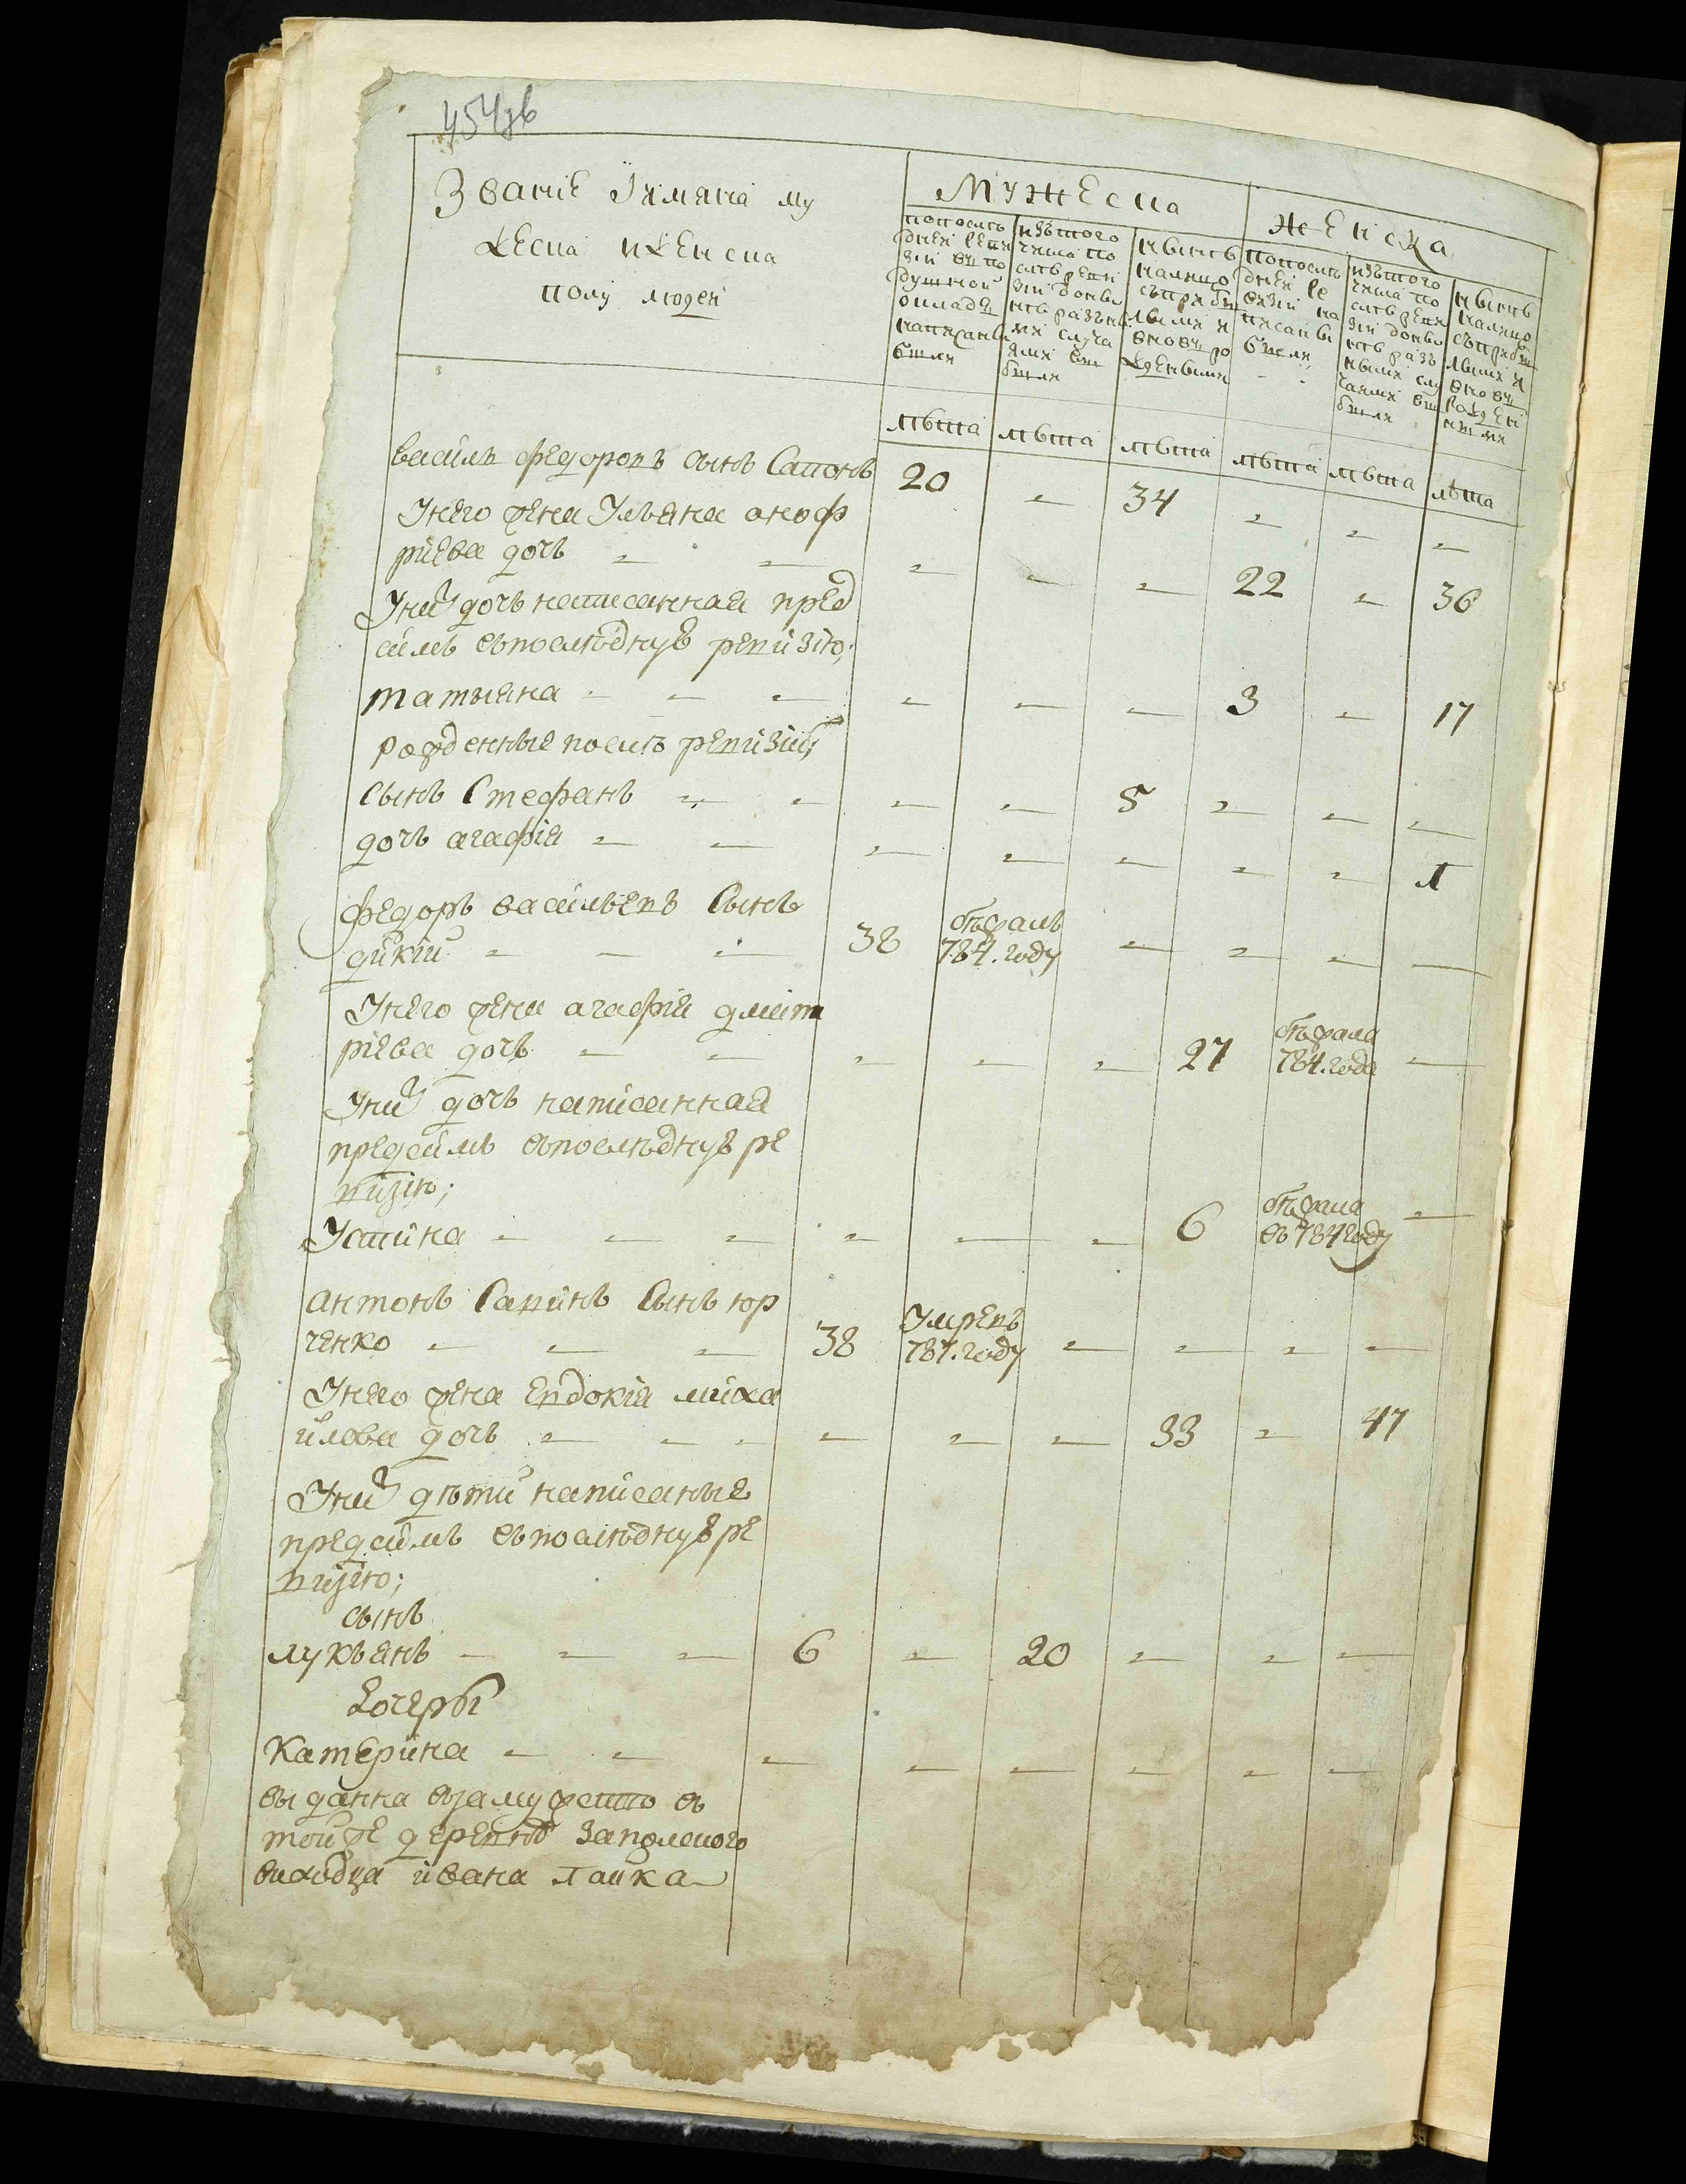 454зв
Званіе Іимяна му
жеска иженска
полу людей
Мужеска
женска
попослѣ
дней реви
зіи въ по
душной
окладъ
написаны
были
изътого
числа по
слѣ реви
зіи доны
нѣ разны
ми случа
ями вы
были
нынѣ
налицо
съприбы
лыми и
вновь ро
ждеными
попослѣ
дней ре
визіи на
писаны
были
изътого
числа по
слѣ реви
зіи доны
нѣ раз
ными слу
чаями вы
были
нынѣ
налицо
съприбы
лыми и
вновь
рожден
ными
лѣта лѣта лѣта лѣта лѣта лѣта
василь федоровъ сынъ Сапонъ 20 - 34 - - -
Унего жена Ульяна оноф
ріева дочь - - - - - 22 - 36
Уний дочь написанная пред
симъ въпослѣднуе ревизію;
татьяна - - - - - - 3 - 17
рожденные послѣ ревизии;
сынъ Стефанъ - - - - 5 - - -
дочь агафія - - - - - - - 1
федоръ васильевъ Сынъ
дикий - - - 38 бѣжалъ 784. году - - - -
Унего жена агафія дмит
ріева дочь - - - - - 27 бѣжала 784. года -
Уний дочь написанная
предсимъ въпослѣднуе ре
визію;
Устина - - - - - - 6 бѣжала въ 784 году -
антонъ Савинъ Сынъ юр
ченко - - - 38 Умревъ 787. году - - - -
Унего жена Евдокія миха
илова дочь - - - - - - 33 - 47
Уний дѣти написаные
предсимъ въпослѣднуе ре
визію;
сынъ
лукьянъ - - - 6 - 20 - - -
дочеры
Катерина - - - - - - - -
выданна взамужетто въ
той же деревнѣ заполского
виходца ивана таика